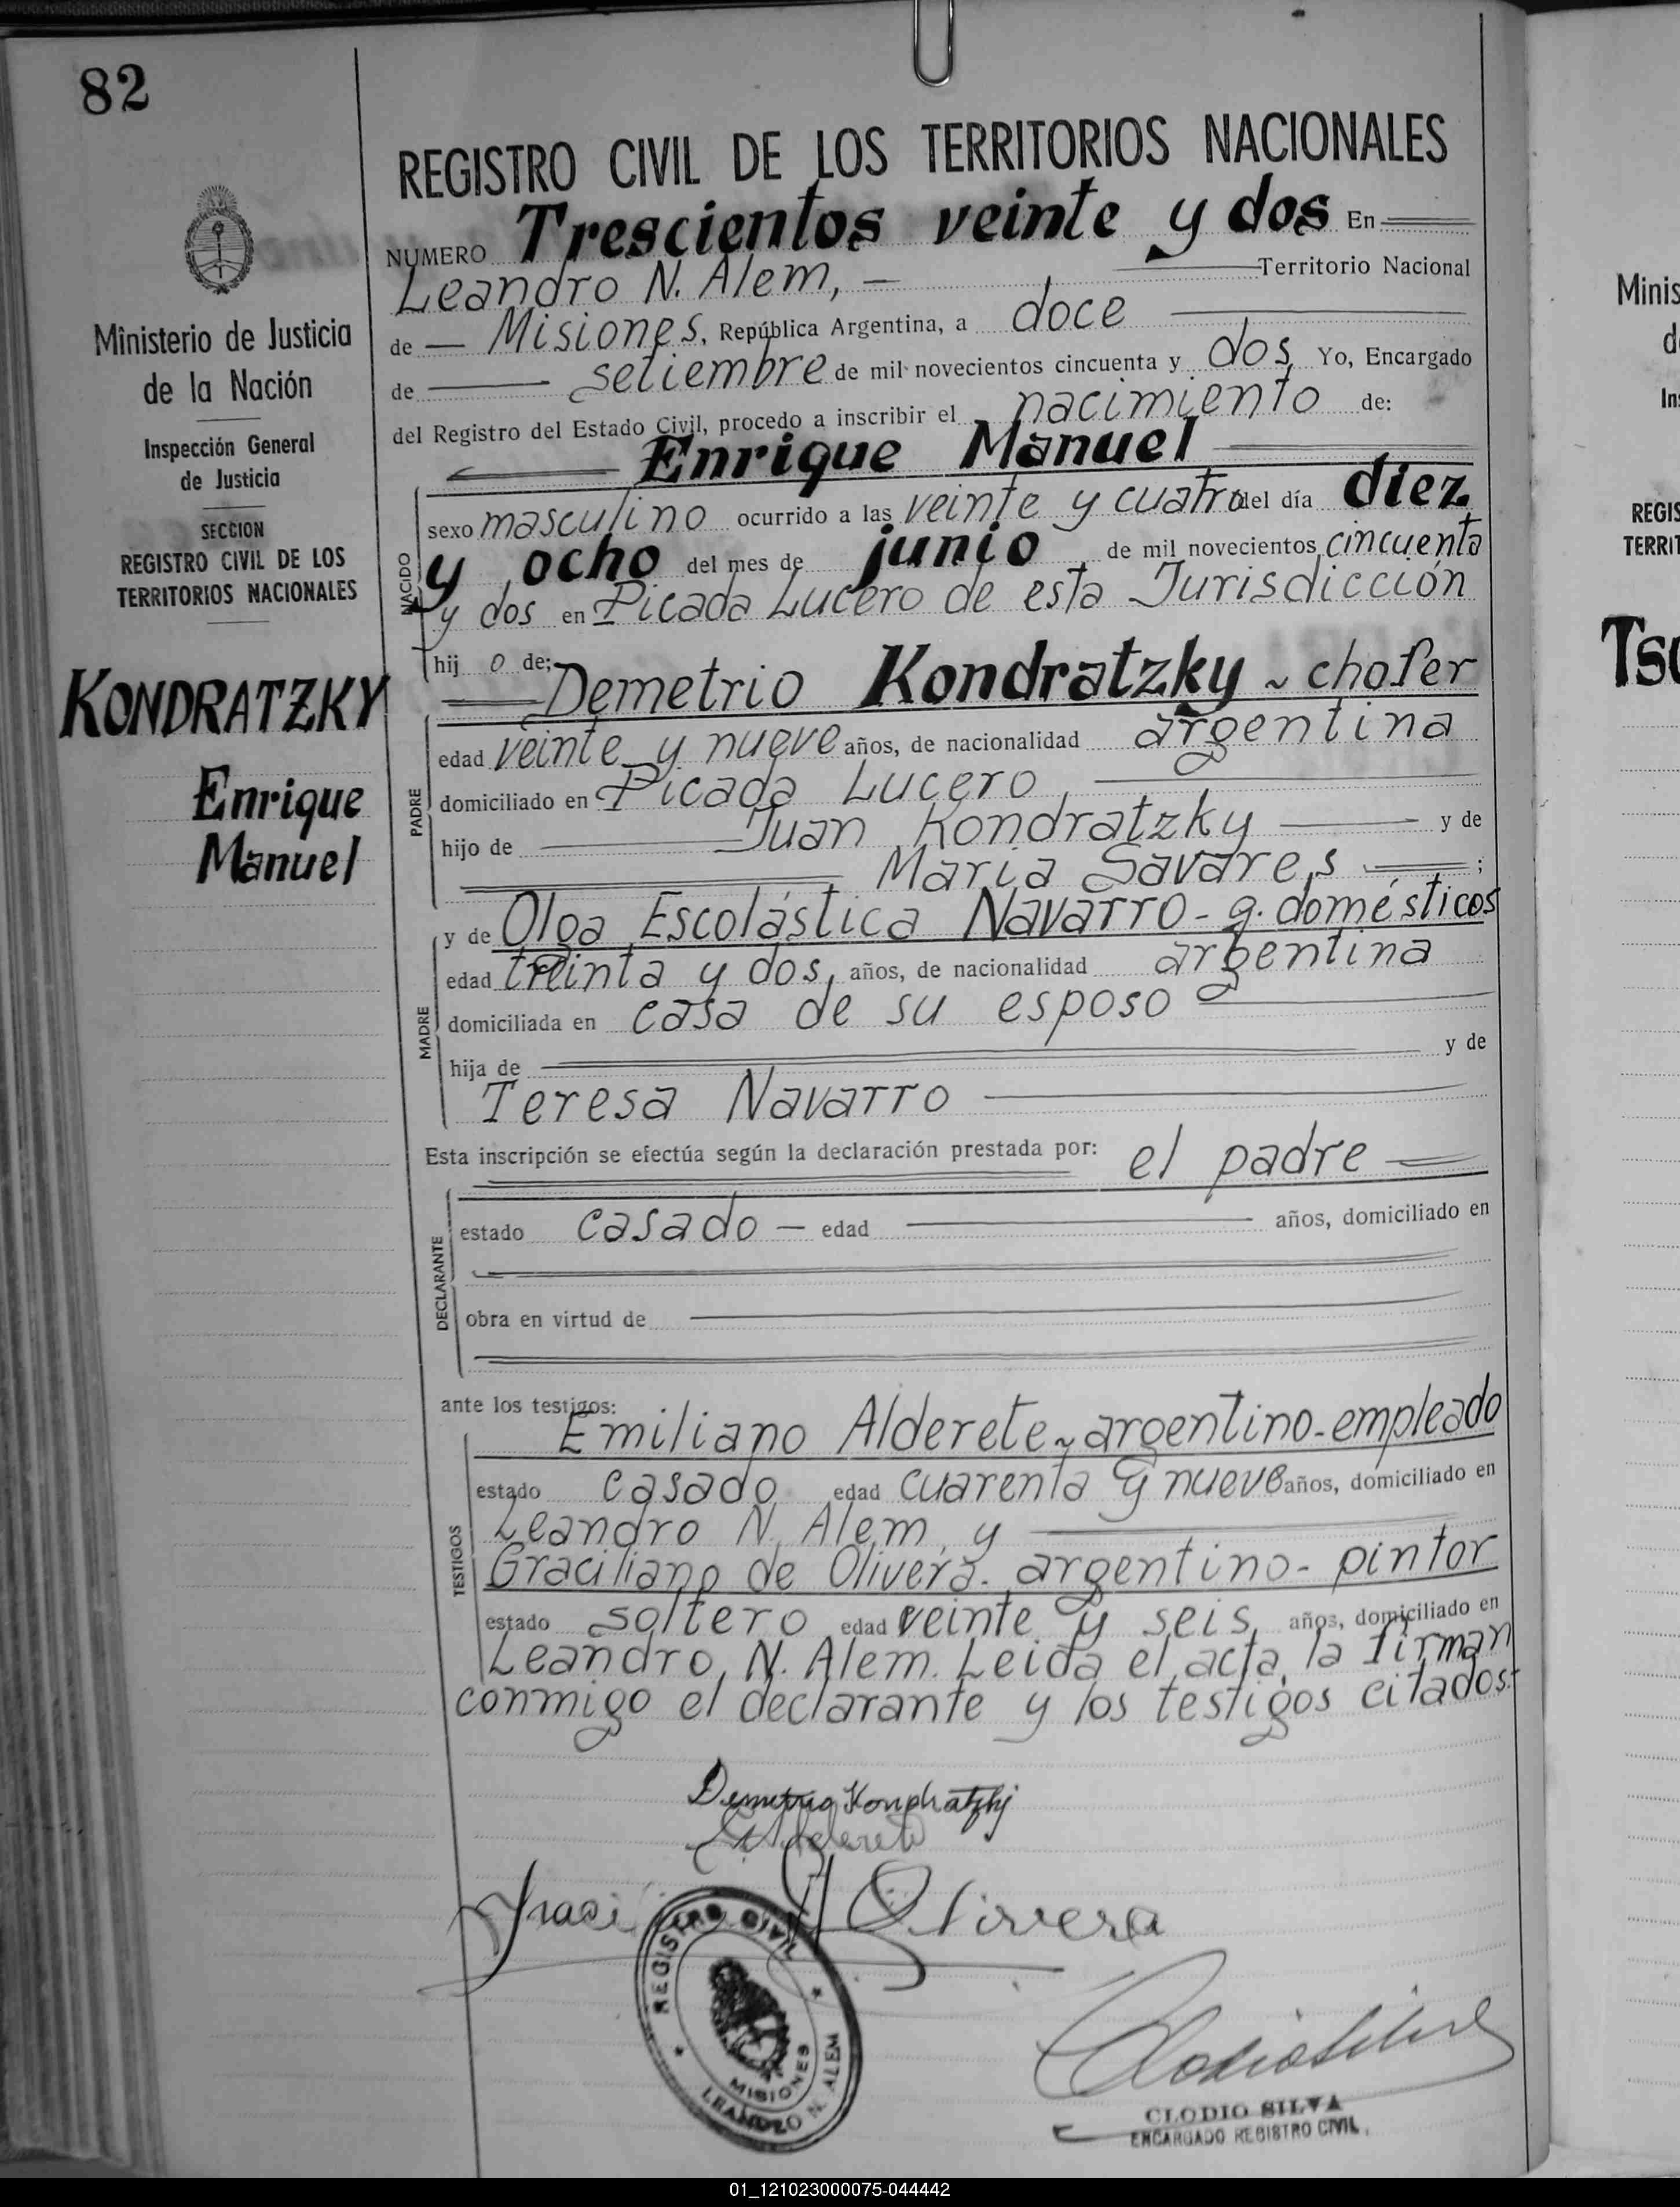 82
REGISTRO CIVIL DE LOS TERRITORIOS NACIONALES
NUMERO Trescientos veinte y dos En
Leandro N. Alem, — Territorio Nacional
de — Misiones, República Argentina, a doce
de setiembre de mil novecientos cincuenta y dos, Yo, Encargado
del Registro del Estado Civil, procedo a inscribir el nacimiento de:
Enrique Manuel
sexo masculino ocurrido a las veinte y cuatro del día diez
y ocho del mes de junio de mil novecientos cincuenta
y dos en Picada Lucero de esta Jurisdicción
hij o de;
NACIDO
Demetrio Kondratzky ~ chofer
edad veinte y nueve años, de nacionalidad argentina
domiciliado en Picada Lucero
hijo de Juan Kondratzky y de
María Savares ;
PADRE
y de Olga Escolástica Navarro - q. domésticos
edad treinta y dos, años, de nacionalidad argentina
domiciliada en casa de su esposo
hija de y de
Teresa Navarro
MADRE
Esta inscripción se efectúa según la declaración prestada por: el padre
estado casado — edad años, domiciliado en
obra en virtud de
DECLARANTE
ante los testigos:
Emiliano Alderete ~ argentino - empleado
estado casado edad cuarenta y nueve años, domiciliado en
Leandro N. Alem, y
Graciliano de Olivera - argentino - pintor
estado soltero edad veinte y seis, años, domiciliado en
Leandro, N. Alem. Leida el acta, la firman
TESTIGOS
conmigo el declarante y los testigos citados.
Demetrio Kondratzky
Olivera
REGISTRO CIVIL
MISIONES
LEANDRO N. ALEM
CLODIO SILVA
ENCARGADO REGISTRO CIVIL.
Ministerio de Justicia
de la Nación
Inspección General
de Justicia
SECCION
REGISTRO CIVIL DE LOS
TERRITORIOS NACIONALES
KONDRATZKY
Enrique
Manuel
Minis
d
In
REGIS
TERRIT
01_121023000075-044442